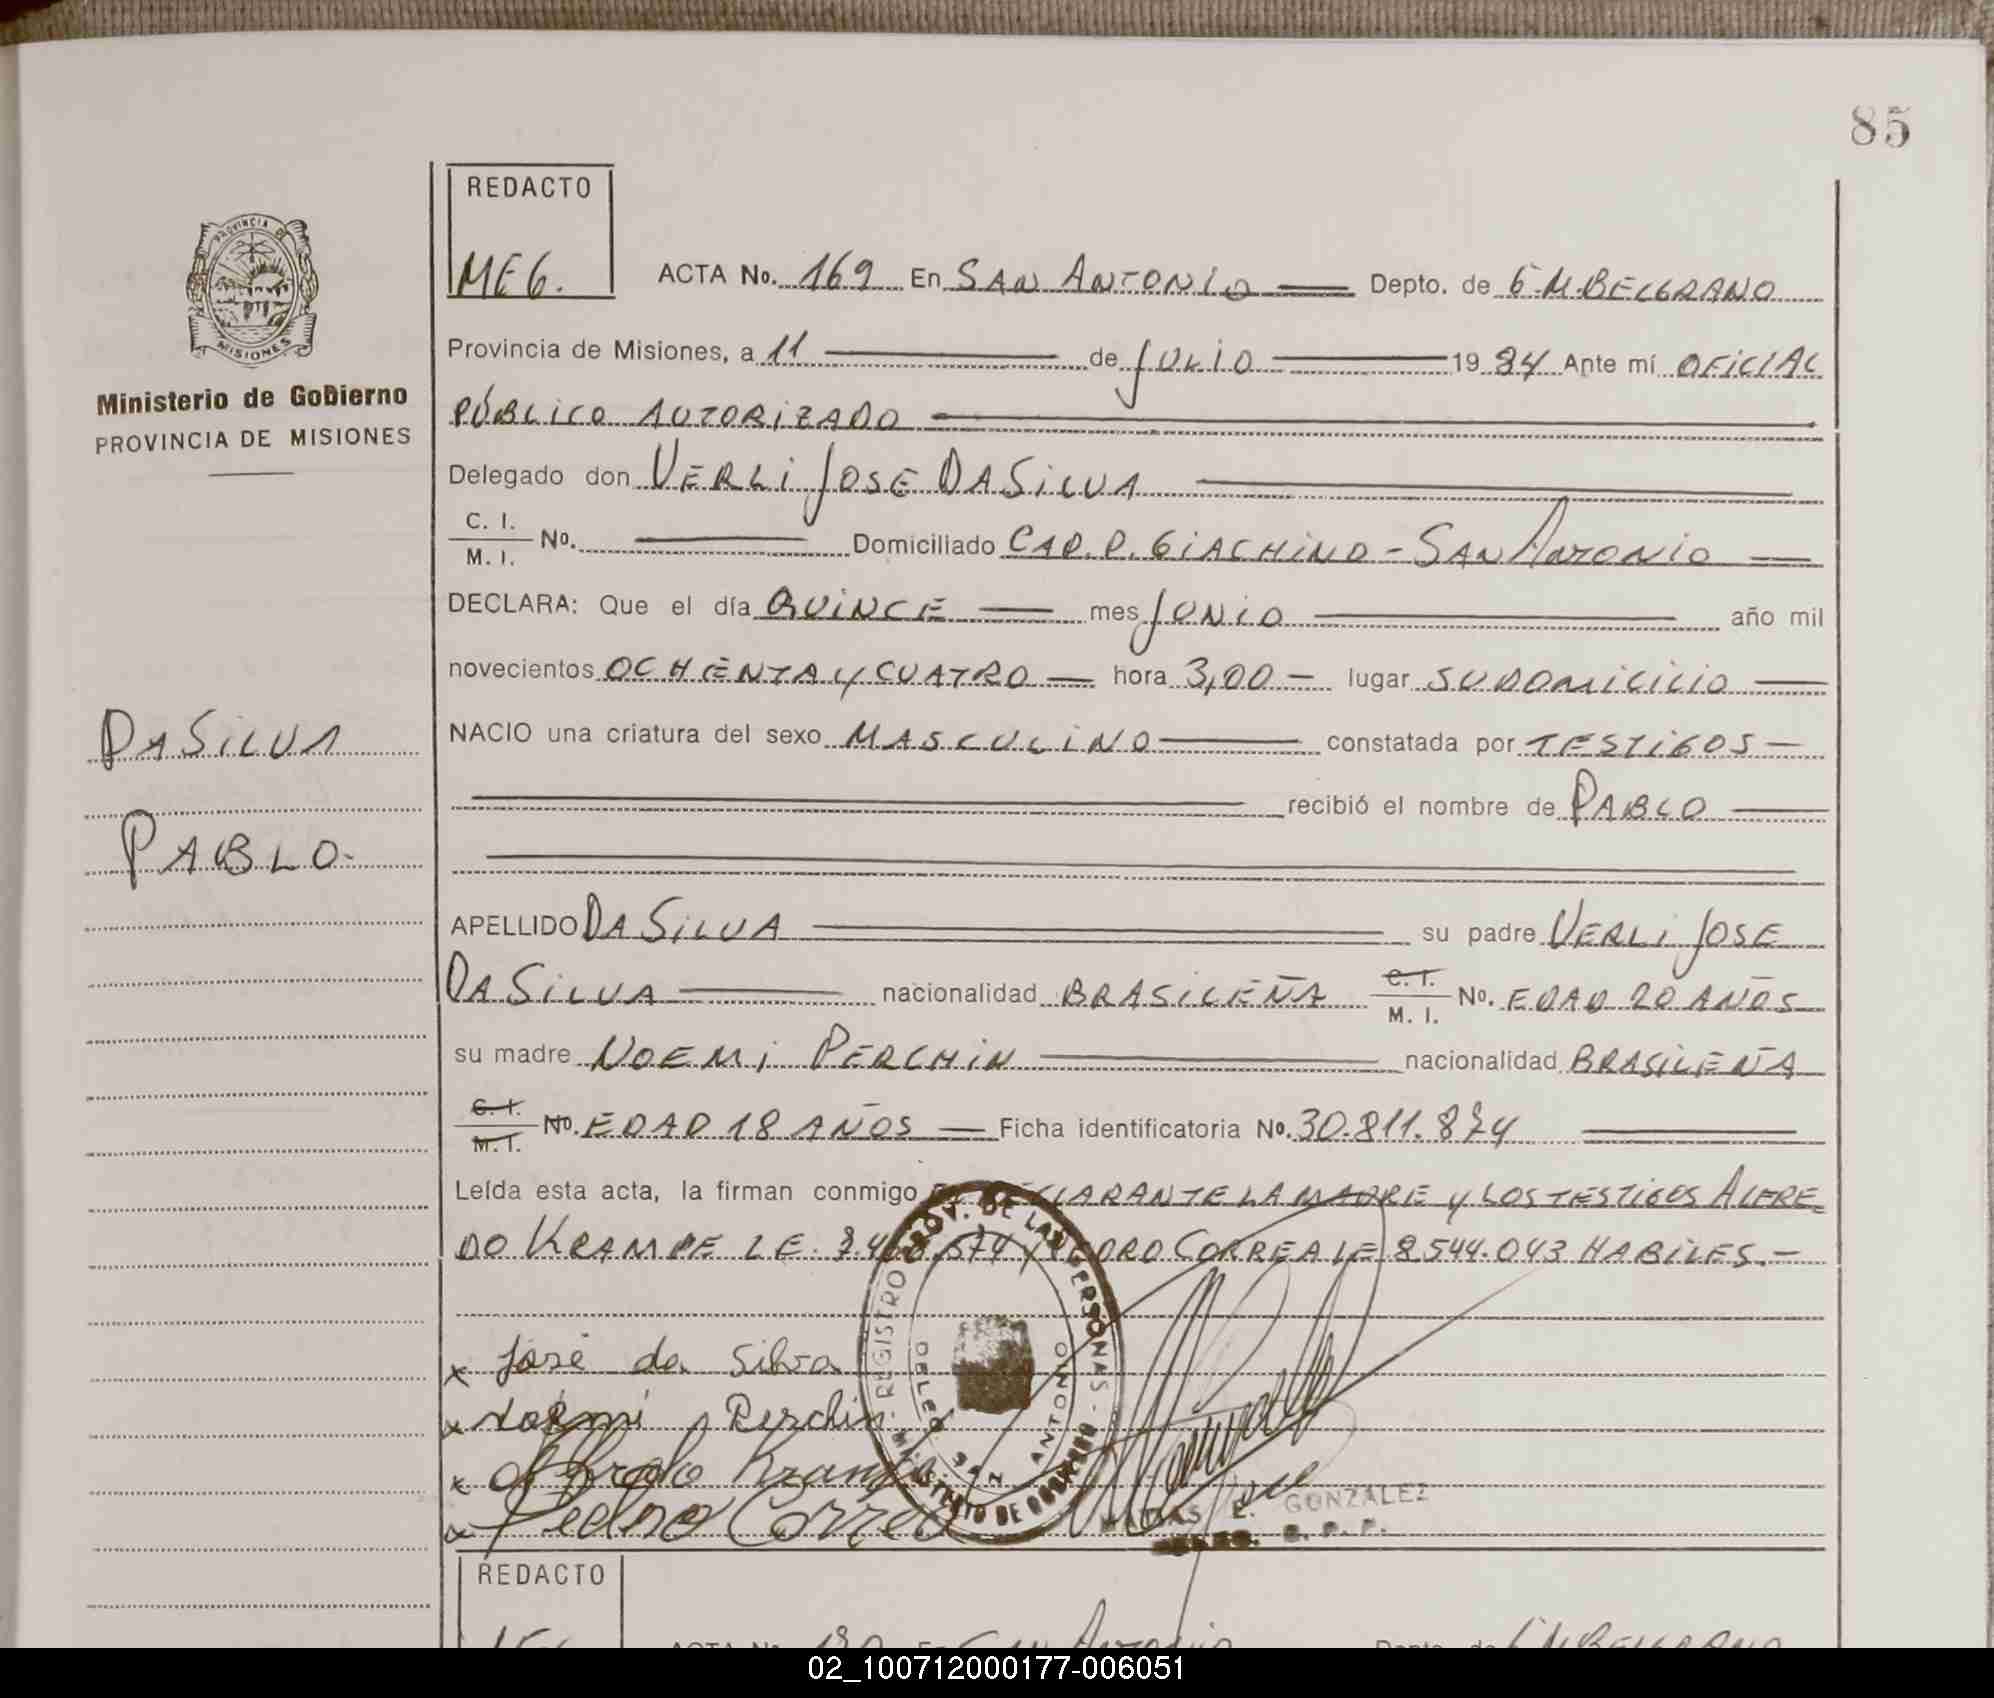 85
REDACTO
MEG.
ACTA No. 169 En SAN ANTONIO Depto. de G. M. BELGRANO
PROVINCIA DE
MISIONES
Ministerio de Gobierno
PROVINCIA DE MISIONES
Provincia de Misiones, a 11 de JULIO 1984 Ante mí OFICIAL
PÚBLICO AUTORIZADO
Delegado don VERLI JOSE DA SILVA
C. I.
M. I. No. Domiciliado CAP. P. GIACHINO - SAN ANTONIO
DECLARA: Que el día QUINCE mes JUNIO año mil
novecientos OCHENTA Y CUATRO hora 3,00 lugar SU DOMICILIO
DA SILVA
NACIO una criatura del sexo MASCULINO constatada por TESTIGOS
recibió el nombre de PABLO
PABLO.
APELLIDO DA SILVA su padre VERLI JOSE
DA SILVA nacionalidad BRASILEÑA C. I. M. I. No. EDAD 20 AÑOS
su madre NOEMI PERCHIN nacionalidad BRASILEÑA
C. I. M. I. No. EDAD 18 AÑOS Ficha identificatoria No. 30.811.874
Leída esta acta, la firman conmigo DECLARANTE LA MADRE Y LOS TESTIGOS ALFRE
DO KRAMPE L E. Y PEDRO CORREA LE 8544.043 HABILES.-
x José da Silva
x Noemi Perchin
x Alfredo Krampe
x Pedro Correa
REGISTRO PROV. DE LAS PERSONAS - MINISTERIO DE GOBIERNO
SAN ANTONIO
E. GONZALEZ
REDACTO
ACTA No. En San Antonio Depto. de G. M. BELGRANO
02_100712000177-006051